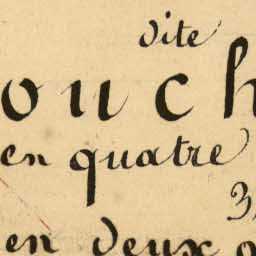 vite
ouch
en quatre
3
en deux